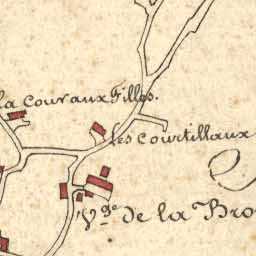 la cour aux Filles.
les courtillaux
V.ge de la Bro